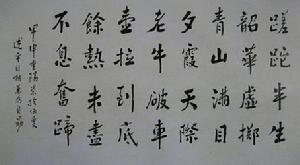 蹉跎半世
韶華虛擲
青山滿目
夕霞天際
老牛破車
壹拉到底
餘熱未盡
不息奮蹄
甲申重陽